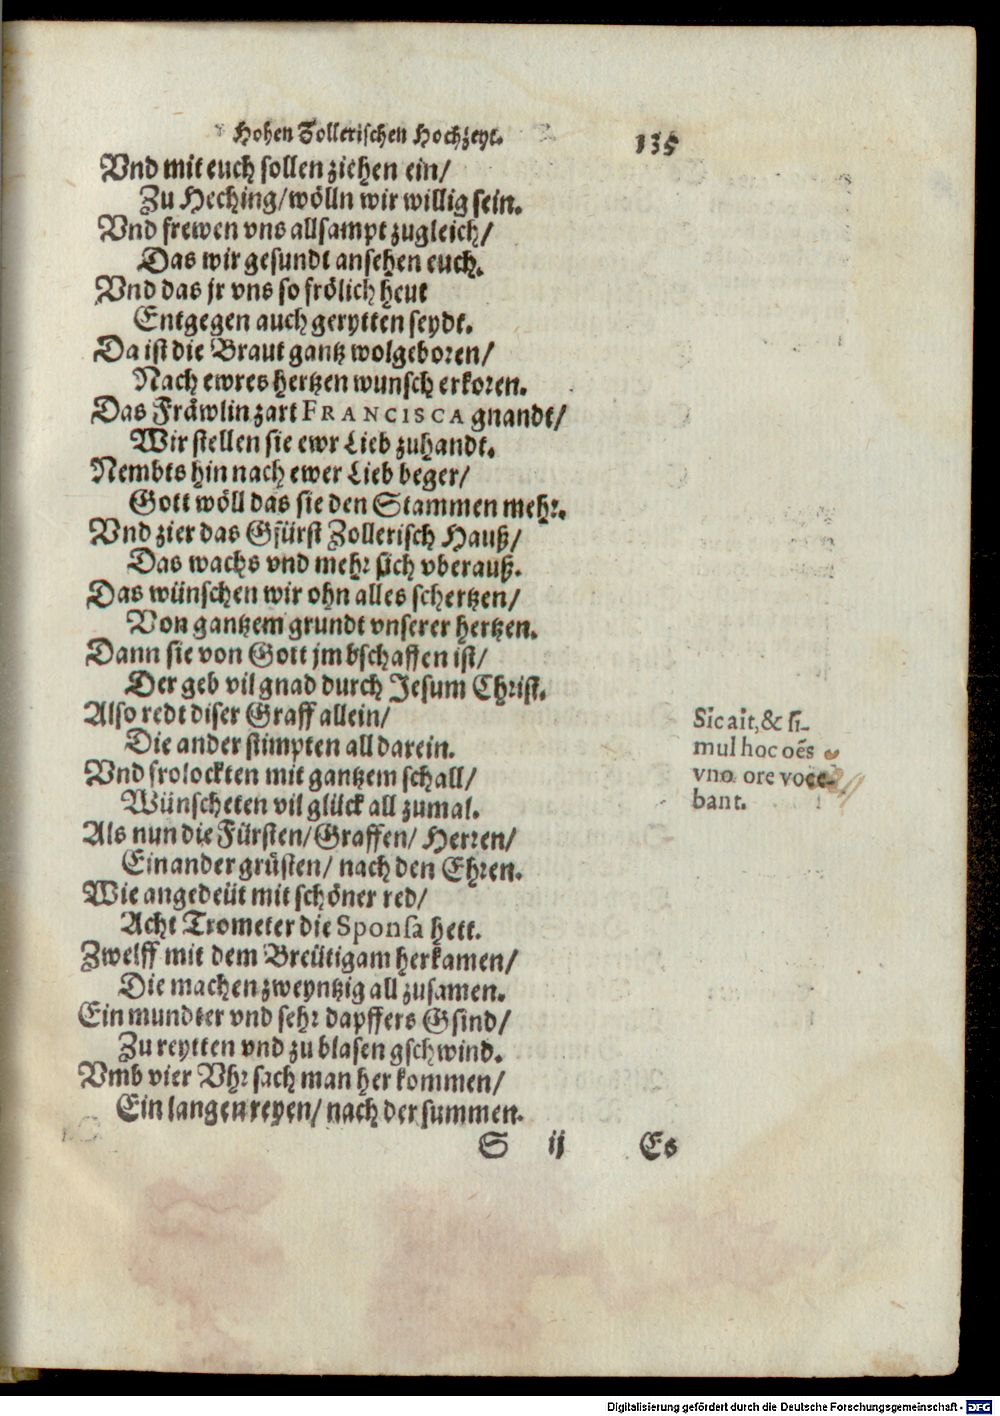 Hohen Zollerischen Hochzeyt. 135
Vnd mit euch sollen ziehen ein/
Zu Heching/ wölln wir willig sein.
Vnd frewen vns allsampt zugleich/
Das wir gesundt ansehen euch.
Vnd das jr vns so frölich heut
Entgegen auch gerytten seydt.
Da ist die Braut gantz wolgeboren/
Nach ewres hertzen wunsch erkoren.
Das Fräwlin zart FRANCISCA gnandt/
Wir stellen sie ewr Lieb zuhandt.
Nembts hin nach ewer Lieb beger/
Gott wöll das sie den Stammen mehr.
Vnd zier das Gfürst Zollerisch Hauß/
Das wachs vnd mehr sich vberauß.
Das wünschen wir ohn alles schertzen/
Von gantzem grundt vnserer hertzen.
Dann sie von Gott jm bschaffen ist/
Der geb vil gnad durch Jesum Christ.
Also redt diser Graff allein/
Die ander stimpten all darein.
Vnd frolockten mit gantzem schall/
Wünscheten vil glück all zumal.
Als nun die Fürsten/ Graffen/ Herren/
Einander grüsten/ nach den Ehren.
Wie angedeüt mit schöner red/
Acht Trometer die Sponsa hett.
Zwelff mit dem Breütigam herkamen/
Die machen zweyntzig all zusamen.
Ein mundter vnd sehr dapffers Gsind/
Zu reytten vnd zu blasen gschwind.
Vmb vier Vhr sach man her kommen/
Ein langen reyen/ nach der summen.
S ij Es
Sic ait, & si-
mul hoc oēs
vno ore voce-
bant.
Digitalisierung gefördert durch die Deutsche Forschungsgemeinschaft - DFG